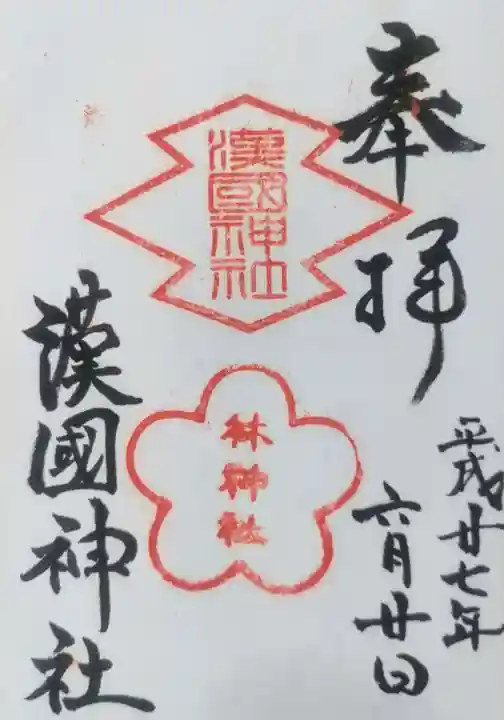 奉拝
平成廿七年
六月廿日
漢國神社
林神社
漢國神社